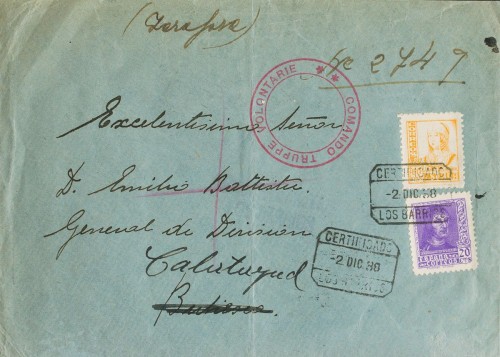 (Zarafoza)
No 2749
COMANDO TRUPPE VOLONTARIE
Excelentisimo Señor
D. Emilio Battisti
General de División
Calatayud
CERTIFICADO
-2 DIC. 80
LOS BARR
CERTIFICADO
-2 DIC. 80
LOS
ESPAÑA
CORREOS
20